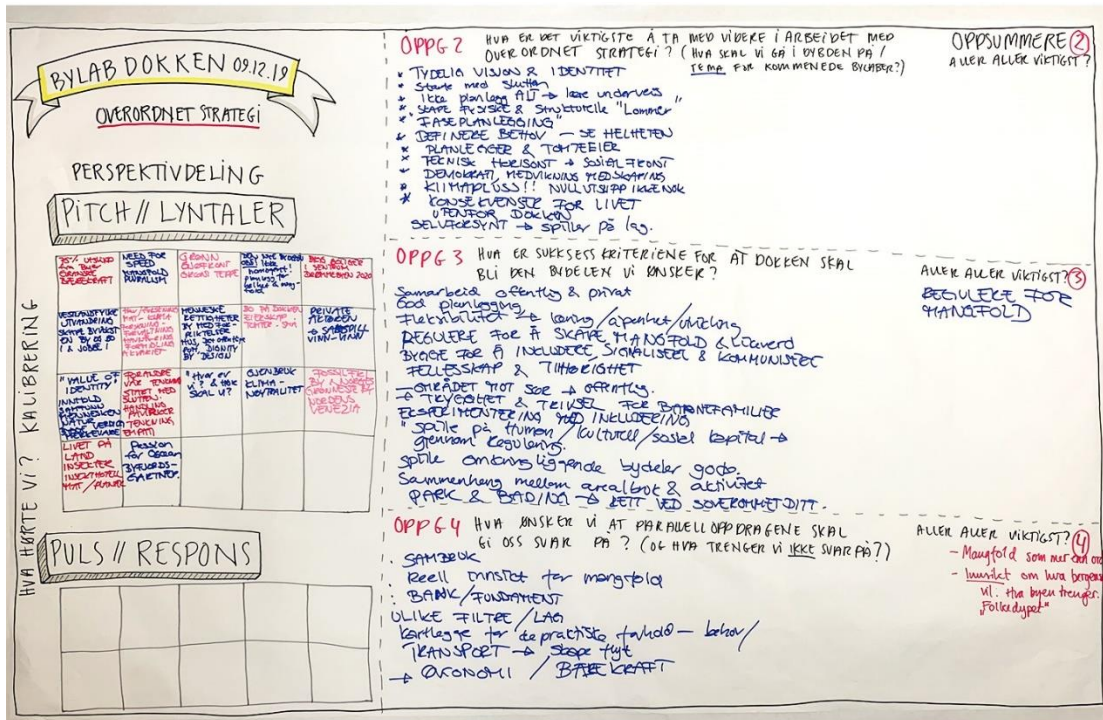 BYLAB DOKKEN 09.12.19
OVERORDNET STRATEGI
PERSPEKTIVDELING
PITCH // LYNTALER
HVA HØRTE VI? KALIBRERING
NEED FOR
SPEED
MANGFOLD
PLURALISM
GRØNN
SJØFRONT
"VALUE OF
IDENTITY"
INNHOLD
SAMFUNN
MENNESKEN
NATUR
PRIVATE
AKTØREN
VINN-VINN
DIGNITY
BY DESIGN
"Hvor er
vi? & Hvor
SKAL VI?
GJENBRUK
KLIMA-
NØYTRALITET
FOSSILFRI
BY & NORGES
GRØNNESTE
NORDENS
VENEZIA
LIVET PÅ
LAND
INSEKTER
INSEKTHOTELL
MAT/PLANTER
Passion
for Ocean
BYFJORDS-
GARTNER
PULS // RESPONS
OPPG 2 HVA ER DET VIKTIGSTE Å TA MED VIDERE I ARBEIDET MED
OVERORDNET STRATEGI? (HVA SKAL VI GÅ I DYBDEN PÅ /
TEMA FOR KOMMENEDE BYLABER?)
* TYDELIG VISJON & IDENTITET
* Starte med slutten
* Ikke planlegg ALT → lære underveis
* SKAPE FYSISKE & Strukturelle "Lommer"
* "FASEPLANLEGGING"
* DEFINERE BEHOV – SE HELHETEN
* PLANLEGGER & TOMTEEIER
* TEKNISK HORISONT → SOSIAL FRONT
* DEMOKRATI, MEDVIRKNING MEDSKAPING
* KLIMAPLUSS!! NULLUTSLIPP IKKE NOK
* KONSEKVENSER FOR LIVET
UTENFOR DOKKEN
SELVFORSYNT → spiller på lag.
OPPSUMMERE 2
ALLER ALLER VIKTIGST?
OPPG 3 HVA ER SUKSESS KRITERIENE FOR AT DOKKEN SKAL
BLI DEN BYDELEN VI ØNSKER?
Samarbeid offentlig & privat
God planlegging
Fleksibilitet → læring/åpenhet/utvikling
REGULERE FOR Å SKAPE MANGFOLD &
BYGGE FOR Å INKLUDERE, SIGNALISERE & KOMMUNISERE
FELLESSKAP & TILHØRIGHET
– OMRÅDET MOT SØR → OFFENTLIG.
→ TRYGGHET & TRIVSEL FOR BARNEFAMILIER
EKSPERIMENTERING MED INKLUDERING
"spille på Human/kulturell/sosial kapital →
gjennom Regulering.
Spille omkringliggende bydeler gode.
Sammenheng mellom arealbruk & aktivitet
PARK & BADING → RETT VED SOVEROMMET DITT.
ALLER ALLER VIKTIGST? 3
REGULERE FOR
MANGFOLD
OPPG 4 HVA ØNSKER VI AT PARALLELLOPPDRAGENE SKAL
GI OSS SVAR PÅ? (OG HVA TRENGER VI IKKE SVAR PÅ?)
. SAMBRUK
Reell innsikt for mangfold
. BANK/FUNDAMENT
ULIKE FILTRE/LAG
Kartlegge for de praktiske forhold – behov/
TRANSPORT → skape flyt
→ ØKONOMI / BÆREKRAFT
ALLER ALLER VIKTIGST? 4
– Mangfold som mer enn ord
– Innsikt om hva
vil. Hva byen trenger.
"Folkedypet"